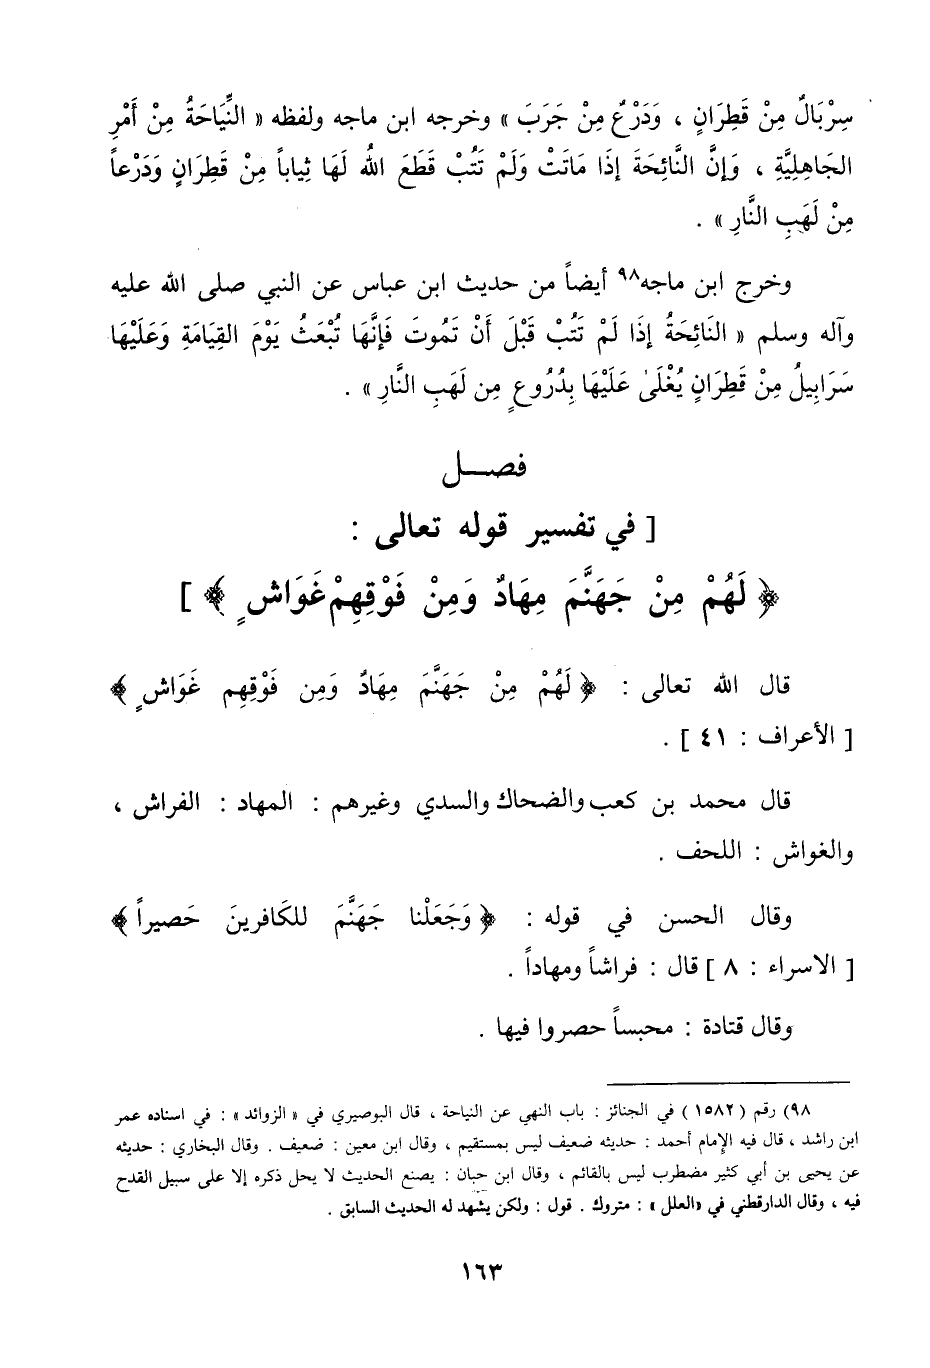 سِرْبَالٌ مِنْ قَطِرَانٍ ، وَدَرْعٌ مِنْ جَرَبَ » وخرجه ابن ماجه ولفظه « النِّيَاحَةُ مِنْ أَمْرِ
الجَاهِلِيَّةِ ، وَإِنَّ النَّائِحَةَ إِذَا مَاتَتْ وَلَمْ تَتُبْ قَطَعَ اللهُ لَهَا ثِيَاباً مِنْ قَطِرَانٍ وَدَرْعاً
مِنْ لَهَبِ النَّارِ » .
وخرج ابن ماجه٩٨ أيضاً من حديث ابن عباس عن النبي صلى الله عليه
وآله وسلم « النَائِحَةُ إِذَا لَمْ تَتُبْ قَبْلَ أَنْ تَمُوتَ فَإِنَّهَا تُبْعَثُ يَوْمَ القِيَامَةِ وَعَلَيْهَا
سَرَابِيلُ مِنْ قَطِرَانٍ يُغْلَىٰ عَلَيْهَا بِدُرُوعٍ مِن لَهَبِ النَّارِ » .
فصـــل
[ في تفسير قوله تعالى :
﴿ لَهُمْ مِنْ جَهَنَّمَ مِهَادٌ وَمِنْ فَوْقِهِمْ غَوَاشٍ ﴾ ]
قال الله تعالى : ﴿ لَهُمْ مِنْ جَهَنَّمَ مِهَادٌ وَمِن فَوْقِهِم غَوَاشٍ ﴾
[ الأعراف : ٤١ ] .
قال محمد بن كعب والضحاك والسدي وغيرهم : المهاد : الفراش ،
والغواش : اللحف .
وقال الحسن في قوله : ﴿ وَجَعَلْنا جَهَنَّمَ للكَافرينَ حَصيراً ﴾
[ الاسراء : ٨ ] قال : فراشاً ومهاداً .
وقال قتادة : محبساً حصروا فيها .
٩٨) رقم (١٥٨٢) في الجنائز : باب النهي عن النياحة ، قال البوصيري في « الزوائد » : في اسناده عمر
ابن راشد ، قال فيه الإمام أحمد : حديثه ضعيف ليس بمستقيم ، وقال ابن معين : ضعيف . وقال البخاري : حديثه
عن يحيى بن أبي كثير مضطرب ليس بالقائم ، وقال ابن حبان : يضع الحديث لا يحل ذكره إلا على سبيل القدح
فيه ، وقال الدارقطني في «العلل » : متروك . قول : ولكن يشهد له الحديث السابق .
١٦٣